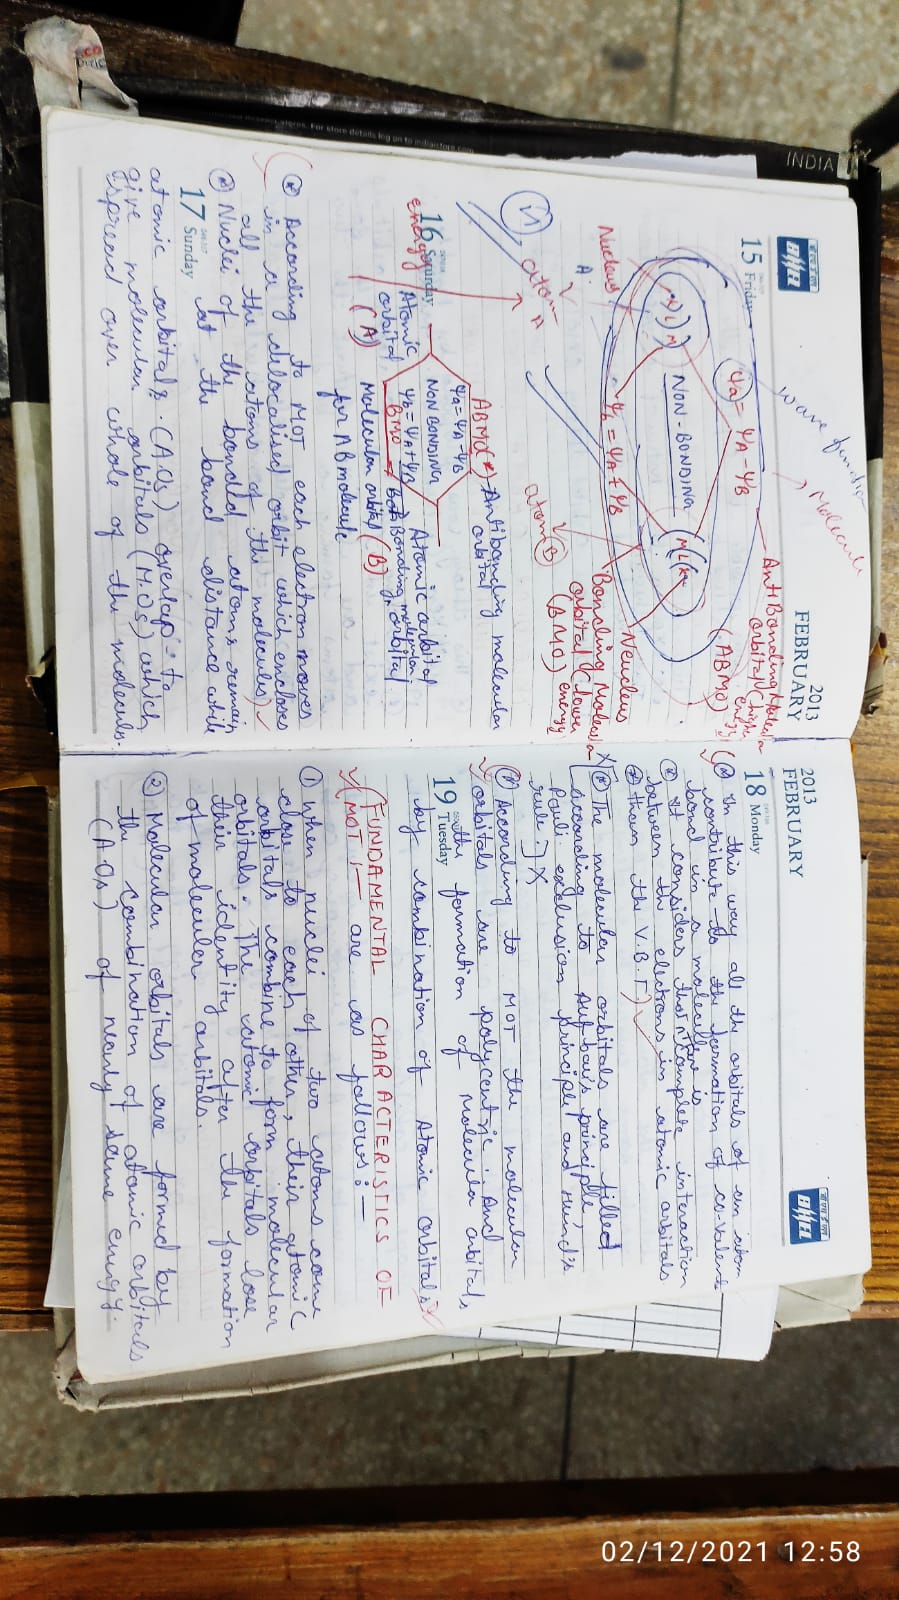 INDIA
BHEL
2013
FEBRUARY
15 Friday
wave function
Molecule
Ψa = ΨA - ΨB
AntiBonding Molecular
orbital (high
energy)
(ABMO)
NON-BONDING
Nucleus
A
Ψb = ΨA + ΨB
Neucleus
Bonding Molecular
orbital (lower
(BMO) energy
atom
A
atom B
ABMO(*) Antibonding molecular
orbital
Ψa = ΨA - ΨB
16 Saturday
energy
NON BONDING
Atomic
orbital
(A)
Atomic orbital
(B)
Ψb = ΨA + ΨB
BMO
Bonding molecular
orbital
Molecular orbital
for AB molecule
According to MOT each electron moves
in a delocalised orbit which encloses
all the atoms of the molecules)
Nuclei of the bonded atoms remain
at the bond distance while
17 Sunday
atomic orbitals (A.Os) overlap to
give molecular orbitals (M.Os) which
spread over whole of the molecule.
2013
FEBRUARY
BHEL
18 Monday
In this way all the orbitals of an atom
contribute to the formation of co-valent
bond in a molecule
It considers that there is complete interaction
between the electrons in atomic orbitals
than the V.B.T)
The molecular orbitals are filled
according to Aufbau's principle,
Pauli exclusion principle and Hund's
rule.] X
According to MOT the molecular
orbitals are polycentric. And
19 Tuesday
the formation of Molecular orbitals
by combination of Atomic orbitals
FUNDAMENTAL CHARACTERISTICS OF
(MOT):- are as follows:-
① When nuclei of two atoms come
close to each other, their atomic
orbitals combine to form molecular
orbitals. The atomic orbitals lose
their identity after the formation
of molecular orbitals.
② Molecular orbitals are formed by
the combination of atomic orbitals
(A Os) of nearly same energy.
02/12/2021 12:58